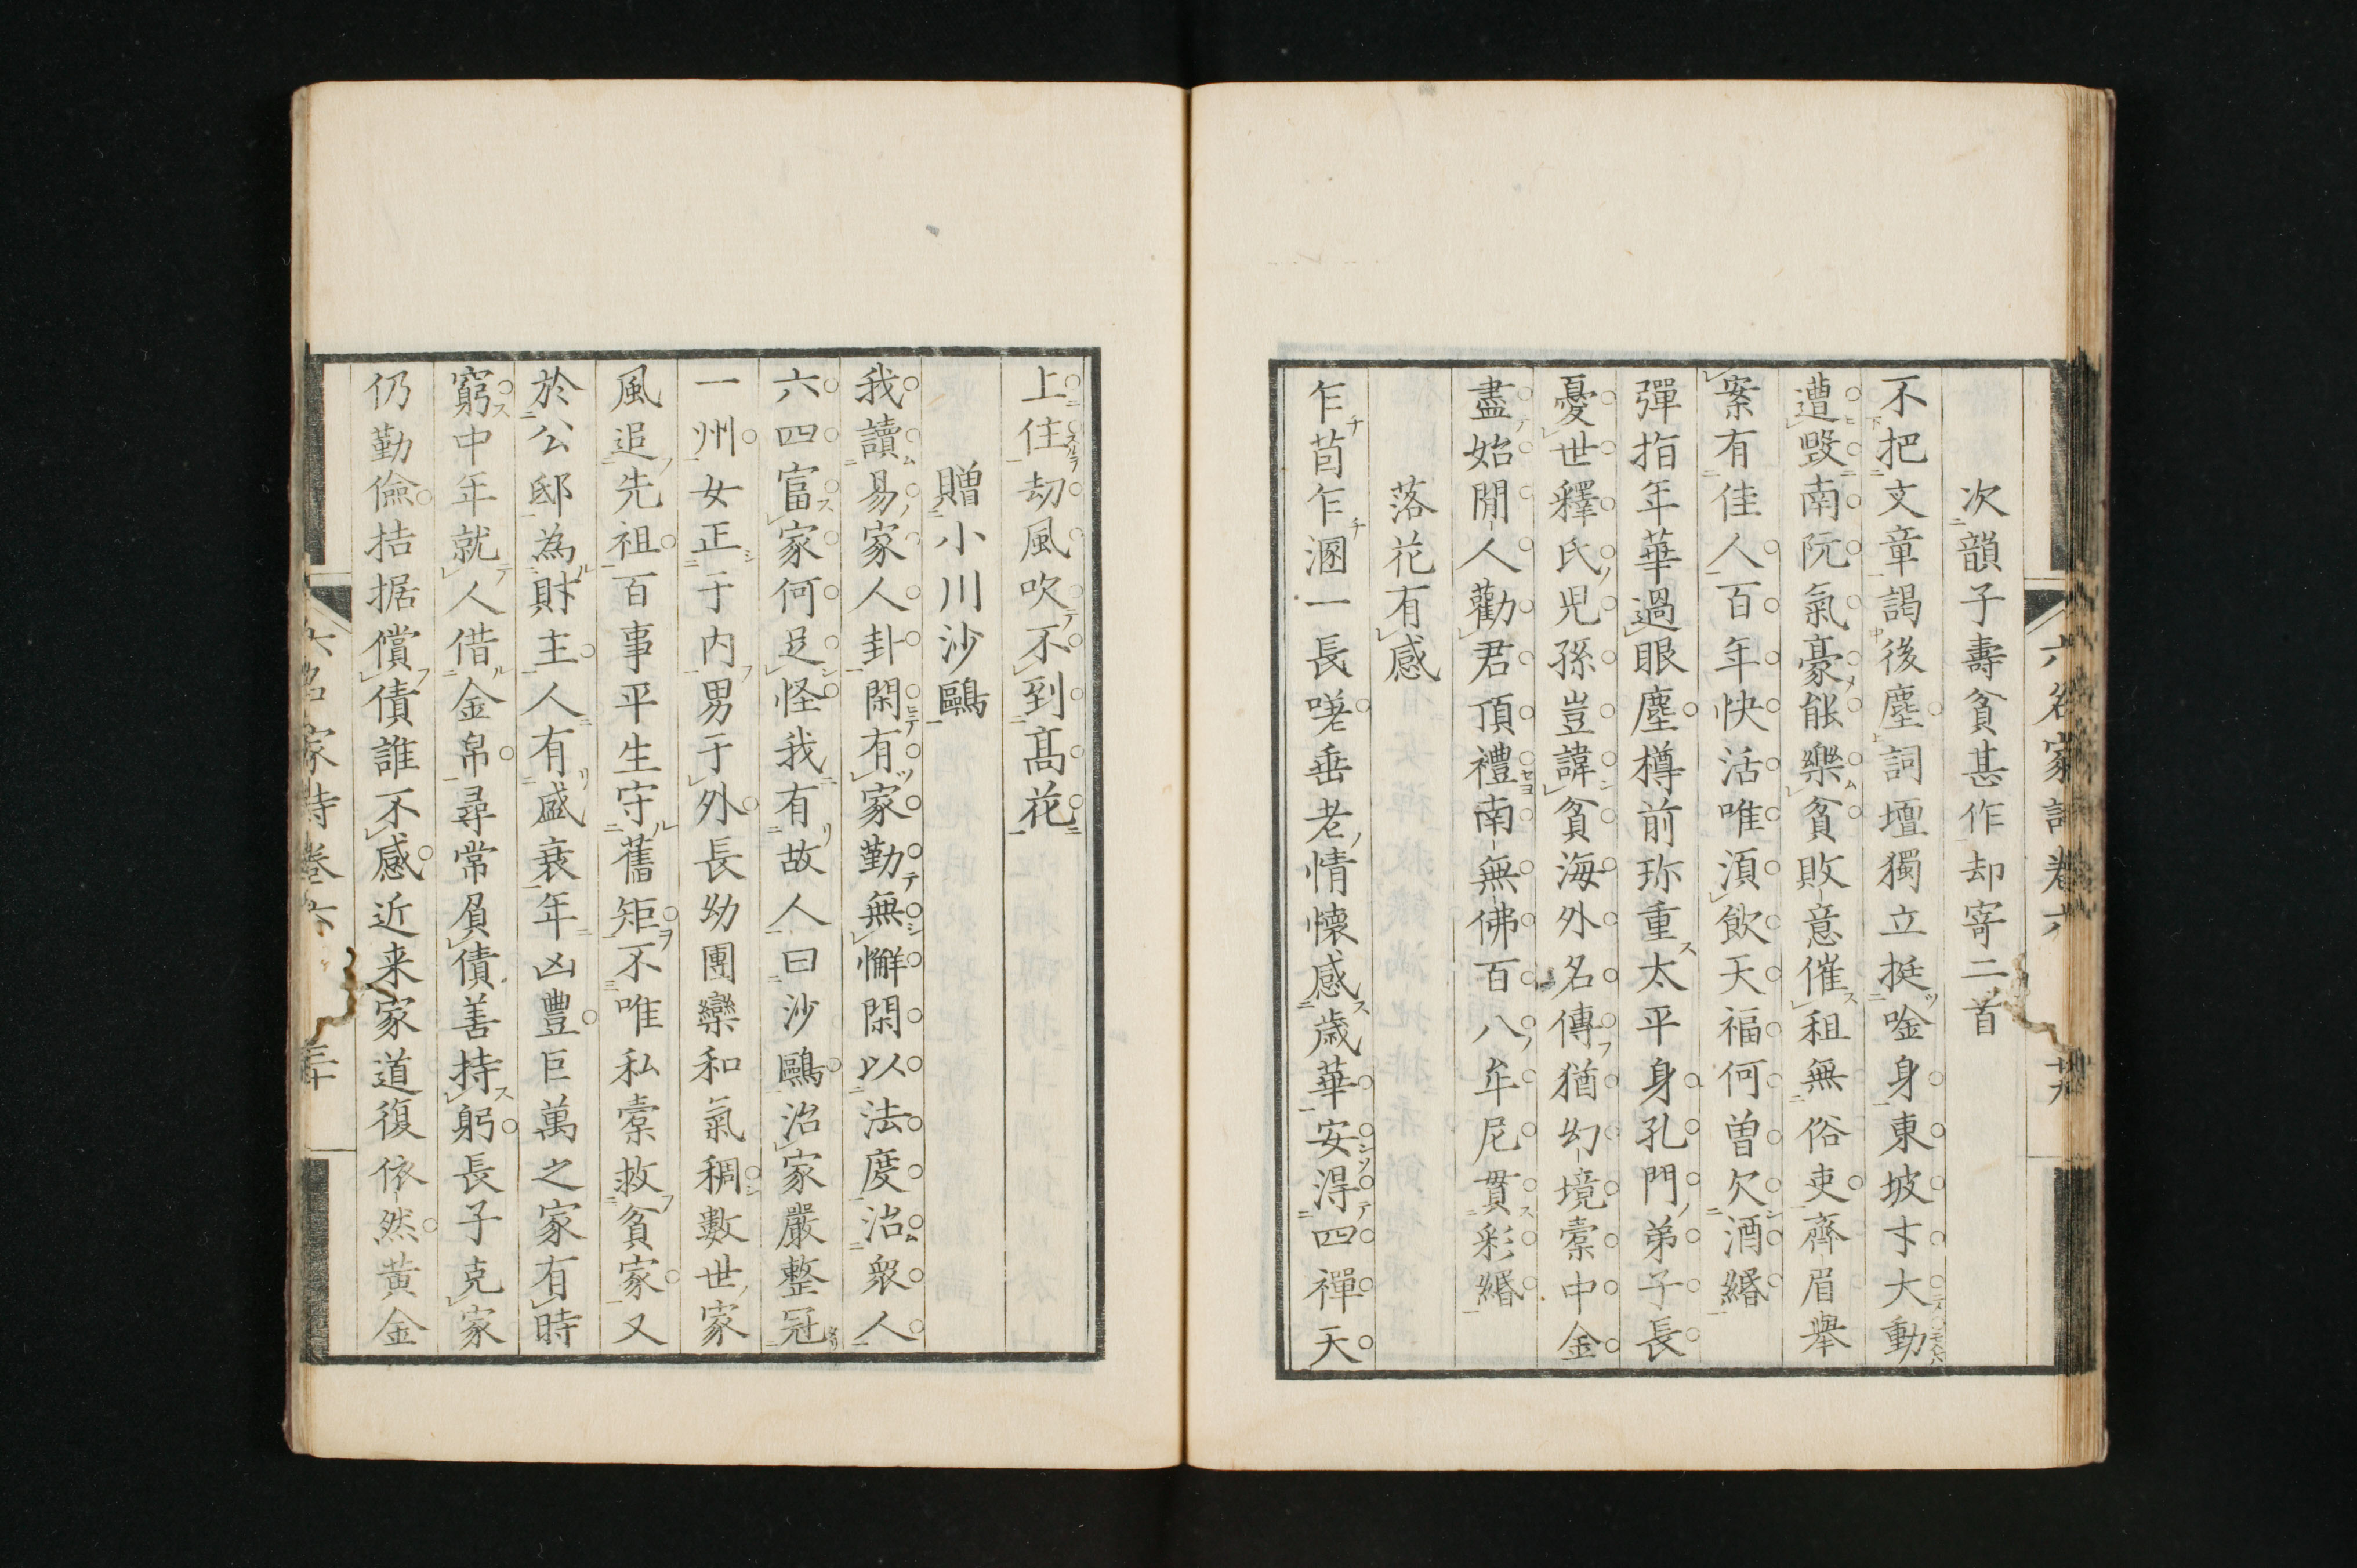 次韻子壽貧甚作却寄二首
不把文章謁後塵詞壇獨立挺唫身東坡才大動
遭毀南阮氣豪能樂貧敗意催租無俗吏齊眉舉
案有佳人百年快活唯湏飲天福何曽欠酒緡
彈指年華過眼塵樽前珎重太平身孔門弟子長
憂世釋氏児孫豈諱貧海外名傳猶幻境橐中金
盡始閒人勸君頂禮南無佛百八牟尼貫彩緡
落花有感
乍茵乍溷一長嘆垂老情懷感歳華安淂四禪天
上住劫風吹不到髙花
贈小川沙鷗
我讀易家人卦閑有家勤無懈閑以法度治衆人
六四富家何足怪我有故人曰沙鷗治家嚴整冠
一州女正于内男于外長幼團欒和氣稠數世家
風追先祖百事平生守舊矩不唯私橐救貧家又
於公邸為財主人有盛衰年凶豊巨萬之家有時
窮中年就人借金帛尋常負債善持躬長子克家
仍勤儉拮据償債誰不感近来家道復依然黄金
六名家詩卷六
六名家詩卷六 三十